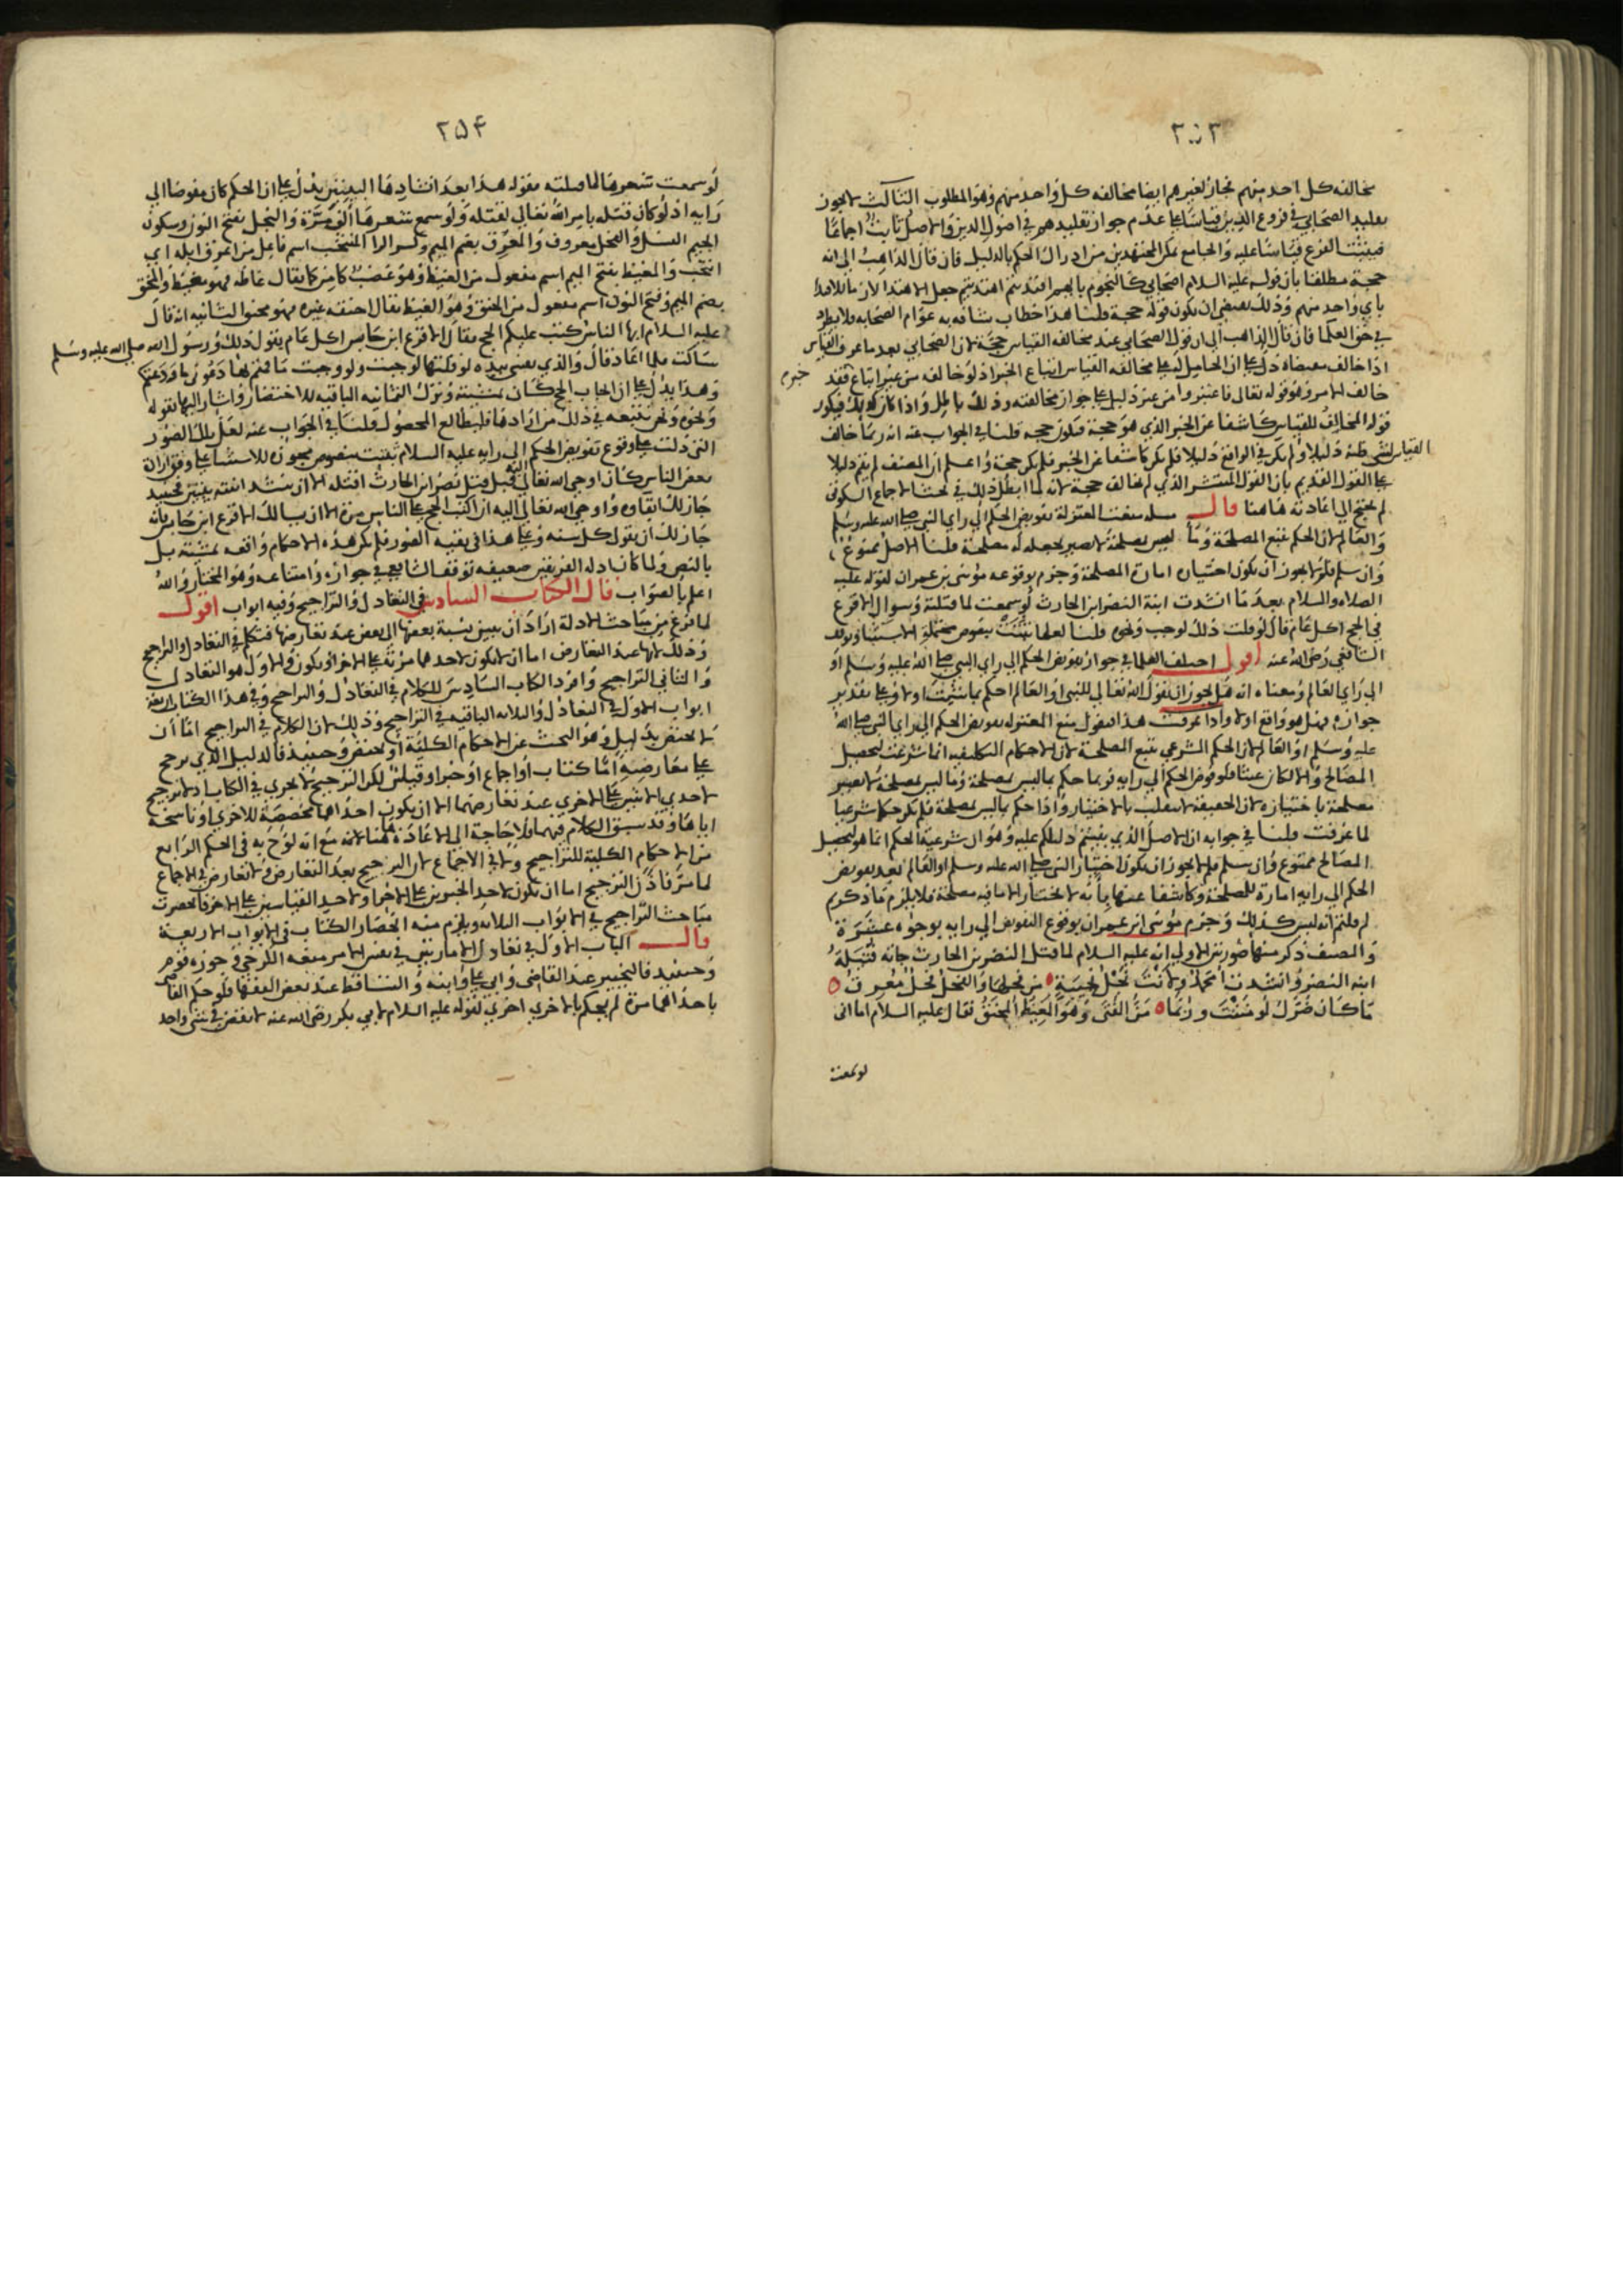 ٢٥٣
مخالفه كل احد منهم فجاز لغيرهم ايضا مخالفه كل واحد منهم وهو المطلوب الثالث لا يجوز
تقليد الصحابي في فروع الدين قياسا على عدم جواز تقليدهم في اصول الدين والاصل ثابت اجماعا
فيثبت الفرع قياسا عليه والجامع تمكن المجتهدين من ادراك الحكم بالدليل فان قال الذاهب الى انه
حجة مطلقا بان قوله عليه السلام اصحابي كالنجوم بايهم اقتديتم اهتديتم جعل الاهتدا لازما للاقتدا
باي واحد منهم وذلك يقتضي ان يكون قوله حجة قلنا هذا خطاب شافه به عوام الصحابه ولا يطرد
في حق العلما فان قال الذاهب الى ان قول الصحابي عند مخالفه القياس حجة لان الصحابي بعد ما عرف القياس
اذا خالف مقتضاه دل على ان الحامل له على مخالفه القياس اتباع الخبر اذ لو خالفه من غير اتباع فقد
خالف الامر وهو قوله تعالى فاعتبروا من غير دليل على جواز مخالفته وذلك باطل واذا كان كذلك فيكون
قوله المخالف للقياس كاشفا عن الخبر الذي هو حجة فيكون حجه قلنا في الجواب عنه انه ربما خالف
القياس لشى ظنه دليلا ولم يكن في الواقع دليلا فلم يكن كاشفا عن الخبر فلم يكن حجة واعلم ان المصنف لم يقم دليلا
على القول القديم بان القول المنتشر الذي لم يخالف حجة لانه لما ابطل ذلك في بحث الاجماع السكوتى
لم يحتج الى اعادته هاهنا قال مسله منعت المعتزلة تفويض الحكم الى راي النبي صلى الله عليه وسلم
والعالم لان الحكم يتبع المصلحة وما ليس بمصلحة لا يصير بجعله له مصلحة قلنا الاصل ممنوع
وان سلم فلم لا يجوز ان يكون اختياره امارة المصلحة وجزم بوقوعه موسى بن عمران لقوله عليه
الصلاه والسلام بعد ما انشدت ابنة النضر ابن الحارث لو سمعت لما قتلته وسوال الاقرع
في الحج اكل عام قال لو قلت ذلك لوجب ونحوه قلنا لعلها ثبتت بنصوص محتملة الاستثنا وتوقف
الشافعي رضى الله عنه اقول اختلف العلما في جواز تفويض الحكم الى راي النبي صلى الله عليه وسلم او
الى راي العالم ومعناه انه هل يجوز ان يقول الله تعالى للنبى او العالم احكم بما شئت او لا وعلى تقدير
جوازه فهل هو واقع او لا واذا عرفت هذا فنقول منع المعتزله تفويض الحكم الى راي النبي صلى الله
عليه وسلم او العالم لان الحكم الشرعي يتبع المصلحة لان الاحكام التكليفيه انما شرعت لتحصيل
المصالح والا لكان عبثا فلو فوض الحكم الى رايه فربما حكم بما ليس بمصلحة وما ليس بمصلحة لا يصير
مصلحة باختياره لان الحقيقه لا تنقلب بالاختيار واذا حكم بما ليس بمصلحة فلم يكن حكما شرعيا
لما عرفت قلنا في جوابه ان الاصل الذي بنيتم دليلكم عليه وهو ان شرعية الحكم انما هو لتحصيل
المصالح ممنوع وان سلم فلم لا يجوز ان يكون اختيار النبي صلى الله عليه وسلم او العالم بعد تفويض
الحكم الى رايه امارة للمصلحة وكاشفا عنها بانه لا يختار الا ما فيه مصلحة فلا يلزم ما ذكرتم
لم قلتم انه ليس كذلك وجزم موسى ابن عمران بوقوع التفويض الى رايه بوجوه عشرة
والمصنف ذكر منها صورتين الاولى انه عليه السلام لما قتل النضر بن الحارث جاته قتيلة
ابنه النضر وانشدت امحمد ولانت نجل نجيبة من نحلها والفحل فحل معرق
ما كان ضرك لو مننت وربما من الفتى وهو المغيظ المحنق فقال عليه السلام اما انى
لو سمعت
خبرم
٢٥٤
لو سمعت شعرها لما قتلته فقوله هذا بعد انشادها البيتين يدل على ان الحكم كان مفوضا الى
رايه اذ لو كان قتله بامر الله تعالى لقتله ولو سمع شعرها الف مرة والنجل بفتح النون وسكون
الجيم النسل والفحل معروف والمعرق بضم الميم وكسر الرا المنتخب اسم فاعل من اعرق ابله اي
انتخب والمغيظ بفتح الميم اسم مفعول من الغيظ وهو غضب كامن كما يقال غاظه فهو مغيظ والمحنق
بضم الميم وفتح النون اسم مفعول من الحنق وهو الغيظ يقال احنقه غيره فهو محنق الثانيه انه قال
عليه السلام ايها الناس كتب عليكم الحج فقال الاقرع ابن حابس اكل عام يقول ذلك ورسول الله صلى الله عليه وسلم
ساكت فلما اعاد قال والذي نفسي بيده لو قلتها لوجبت ولو وجبت ما قمتم بها دعوني ما ودعتكم
وهذا يدل على ان ايجاب الحج كان بمشيته وترك الثمانيه الباقيه للاختصار واشار اليها بقوله
ونحوه ونحن نتبعه في ذلك من ارادها فليطالع المحصول قلنا في الجواب عنه لعل تلك الصور
التى دلت على وقوع تفويض الحكم الى رايه عليه السلام ثبتت بنصوص مجوزة للاستثنا على وفق ارادة
بعض الناس كان اوحى الله تعالى اليه قبل قتل نضر ابن الحارث اقتله الا ان ينشد ابنته بيتين فحينيذ
جاز لك ابقاوه واوحى الله تعالى اليه ان اكتب الحج على الناس مرة الا ان يسالك الاقرع ابن حابس بانه
جاز لك ان تقول كل سنه وعلى هذا فى بقية الصور فلم يكن هذه الاحكام واقعه بمشيته بل
بالنص ولما كان ادله الفريقين ضعيفه توقف الشافعي في جوازه وامتناعه وهو المختار والله
اعلم بالصواب قال الكتاب السادس في التعادل والتراجيح وفيه ابواب اقول
لما فرغ من مباحث الادلة اراد ان يبين نسبة بعضها الى بعض عند تعارضها فتكلم في التعادل والتراجيح
وذلك لانها عند التعارض اما ان لا يكون لاحدهما مزية على الاخر او يكون والاول هو التعادل
والثاني التراجيح وافرد الكتاب السادس للكلام في التعادل والتراجيح وفي هذا الكتاب اربعة
ابواب الاول في التعادل والثلاثه الباقيه في التراجيح وذلك لان الكلام في التراجيح اما ان
لا يختص بدليل وهو البحث عن الاحكام الكلية او يختص وحينيذ فالدليل الذي يرجح
على معارضه اما كتاب او اجماع او خبر او قياس لكن الترجيح لا يجري في الكتاب اذ لا ترجيح
لاحدي الايتين على الاخري عند تعارضهما الا ان يكون احداهما مخصصة للاخري او ناسخة
اياها وقد سبق الكلام فيهما فلا حاجة الى الاعادة هاهنا لانه مع انه لوح به فى الحكم الرابع
من الاحكام الكلية للتراجيح ولا في الاجماع لان الترجيح بعد التعارض ولا تعارض في الاجماع
لما مر فاذن الترجيح اما ان يكون لاحد الخبرين على الاخر او لاحد القياسين على الاخر فانحصرت
مباحث التراجيح في الابواب الثلاثه ويلزم منه انحصار الكتاب فى الابواب الاربعة
قال الباب الاول في تعادل الامارتين في نفس الامر منعه الكرخي وجوزه قوم
وحينيذ فالتخيير عند القاضي وابي على وابنه والتساقط عند بعض الفقها فلو حكم القاضى
باحداهما مرة لم يحكم بالاخري اخري لقوله عليه السلام لابي بكر رضى الله عنه لا تقض في شى واحد